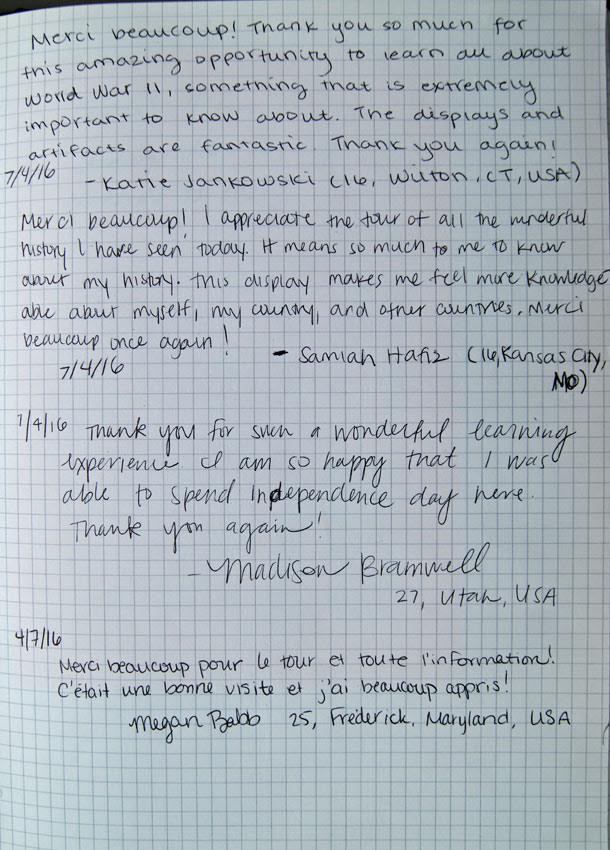 Merci beaucoup! Thank you so much for
this amazing opportunity to learn all about
World War II, something that is extremely
important to know about. The displays and
artifacts are fantastic. Thank you again!
7/4/16 - Katie Jankowski (16, Wilton, CT, USA)
Merci beaucoup! I appreciate the tour of all the wonderful
history I have seen today. It means so much to me to know
about my history. This display makes me feel more knowledge
able about myself, my country, and other countries. Merci
beaucoup once again!
7/4/16 - Samiah Hafiz (16, Kansas City,
MO)
7/4/16 Thank you for such a wonderful learning
experience I am so happy that I was
able to spend Independence day here.
Thank you again!
- Madison Bramwell
27, Utah, USA
4/7/16
Merci beaucoup pour le tour et toute l'information!
C'était une bonne visite et j'ai beaucoup appris!
Megan Babb 25, Frederick, Maryland, USA